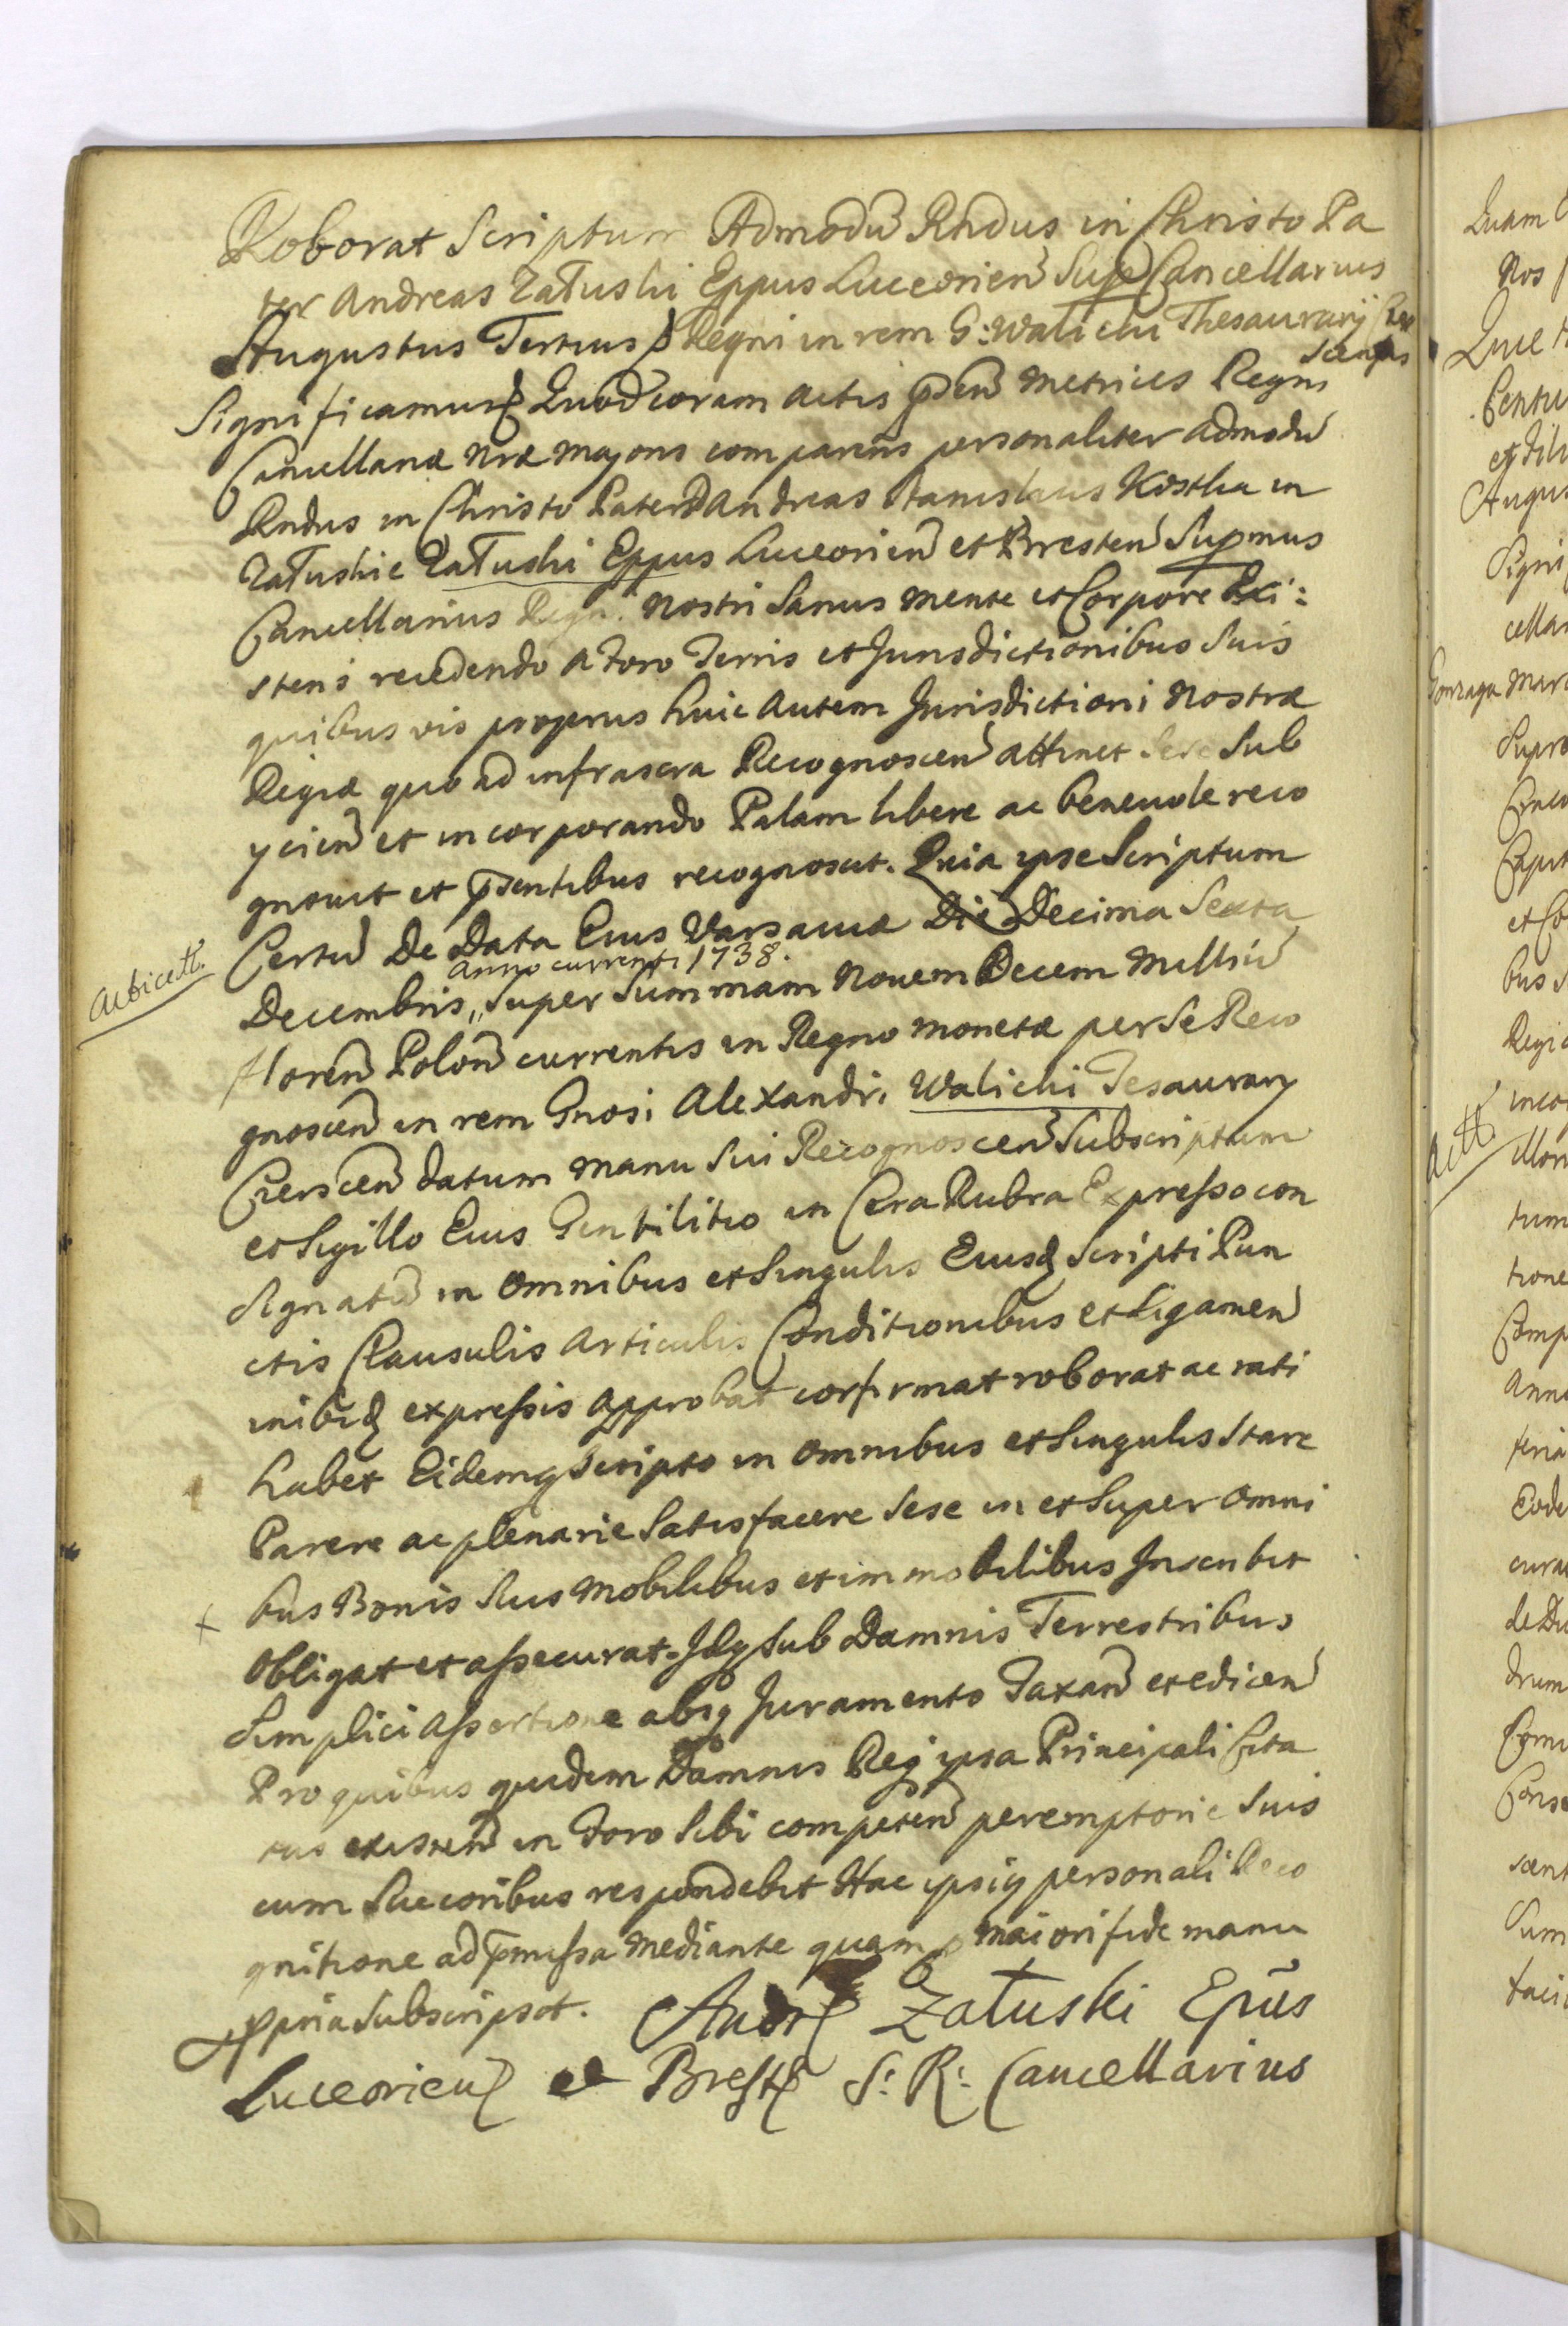 Roborat Scriptum Admodu Rndus in Christo Pa
ter Andreas Załuski Eppus Luceorien Sup Cancellarius
Augustus Tertius Regni in rem G: Walicki Thesaurarij Czer
scensis
Significamus Quod coram actis psen Metrices Regni
Cancellariæ Nræ Majoris comparens personaliter admodu
Rndus in Christo Pater D Andreas Stanislaus Kostka in
Załuskie Załuski Eppus Luceorien et Bresten Supmus
Cancellarius Regni Nostri Sanus mente et Corpore Exi:
stens recedendo a Foro Terris et Jurisdictionibus Suis
quibus vis proprijs huic autem Jurisdictioni Nostræ
Regiæ quo ad infrascra Recognoscen attinet Sese Sub
ycien et incorporando Palam libere ac benevole reco
gnovit et psentibus recognoscit. Quia ipse Scriptum
Certu De Data Eius Varsaviæ Die Decima Sexta
anno currenti 1738.
Decembris, Super Summam Novem Decem Milliu
Floren Polon currentis in Regno monetæ per Se Reco
gnoscen in rem Gnosi Alexandri Walicki Tesaurary
Czerscen datum manu Sui Recognoscen Subscriptum
et Sigillo Eius Gentilitio in Cera Rubra Expresso con
Signatu in omnibus et Singulis Eiusq Scripti Pun
ctis Clausulis Articulis Conditionibus et Ligamen
inibiq expressis approbat confirmat roborat ac rati
habet Eidemq Scripto in omnibus et Singulis Stare
Parere ac plenarie Satisfacere Sese in et Super omni
bus Bonis Suis Mobilibus et immobilibus Inscribit
obligat et assecurat. Idq Sub Damnis Terrestribus
Simplici assertione absq Juramento Taxan et edicen
Pro quibus quidem Damnis Req ipsa Principali Cita
tus existen in Foro Sibi competen peremptorie Suis
cum Succoribus respondebit Hac ipsiq personali Reco
gnitione ad pmissa mediante quam p maiori fide manu
ppria Subscripsit. Andr Załuski Epus
Luceorien et Brest S: R: Cancellarius
acticett.
+
Quam
Nos
Quie
Centu
Augus
Signi
cellar
Gonzaga Mari
Supre
Conce
et Co
bus
Regia
incor
Actt
tum
tione
Comp
Anno
feria
Eode
curat
de Du
drum
Conse
Sum